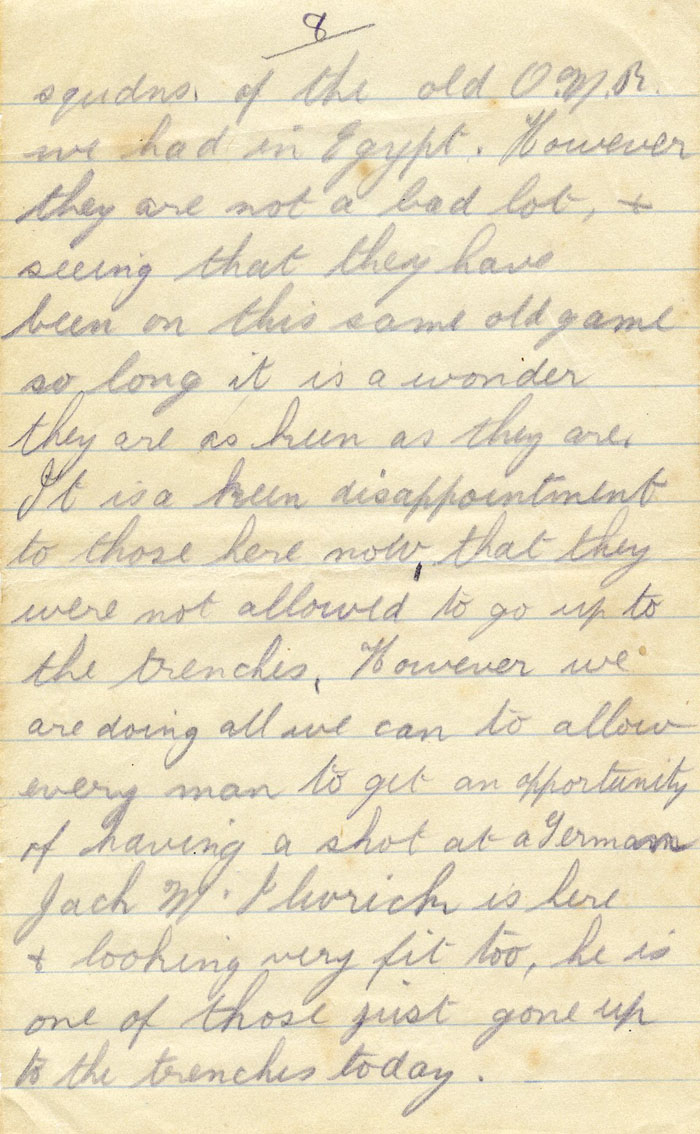 8
squdns. of the old O.M.R.
we had in Egypt. However
they are not a bad lot, +
seeing that they have
been on this same old game
so long it is a wonder
they are as keen as they are.
It is a keen disappointment
to those here now, that they
were not allowed to go up to
the trenches. However we
are doing all we can to allow
every man to get an opportunity
of having a shot at a German
Jack Mc Ilwrick is here
+ looking very fit too, he is
one of those just gone up
to the trenches today.